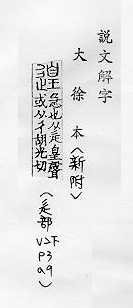 說文解字
大徐本(新附)
遑 急也从辵皇聲
或从彳胡光切
(辵部 V2下 P3 a9)